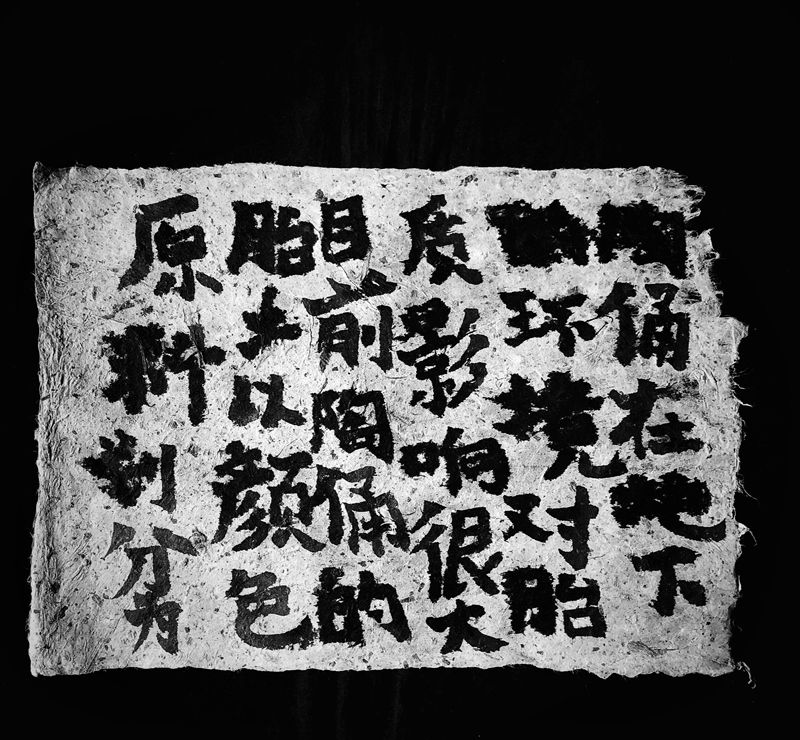 陶俑在地下
环境对胎
质影响很大
目前陶俑的
胎土以颜色
原料划分为